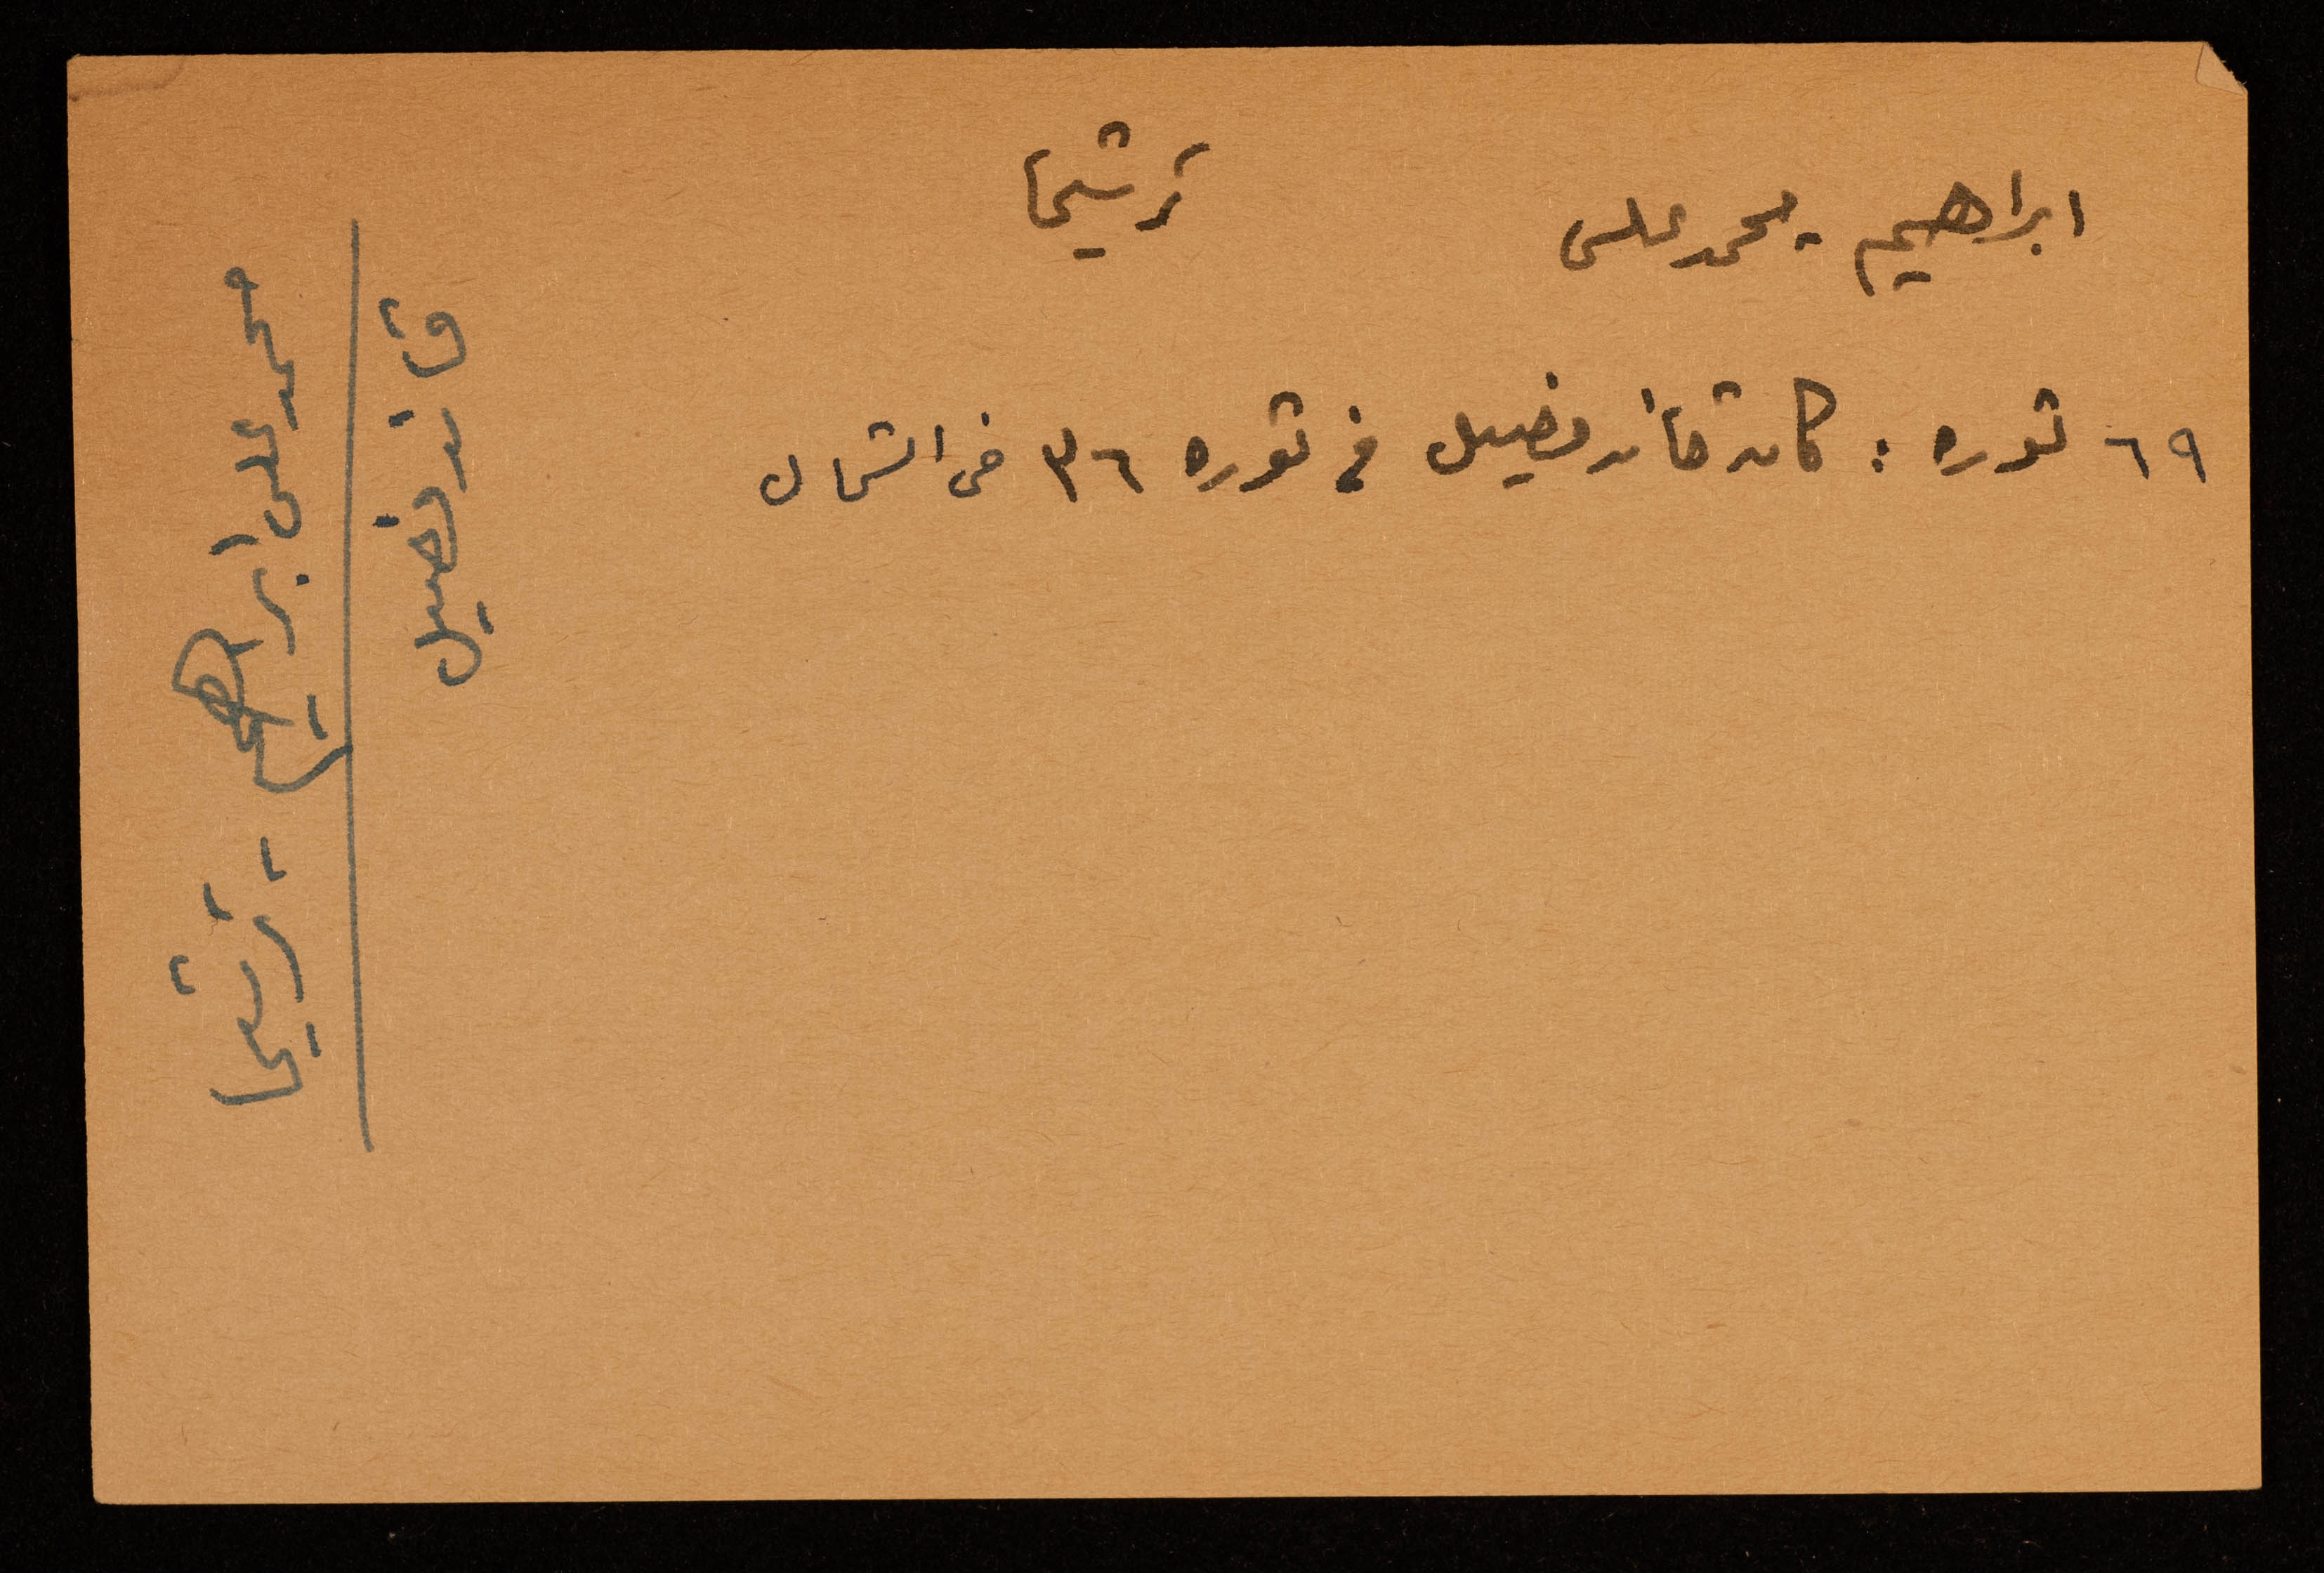 ابراهيم - محمد علي
ترشيحا
٦٩ ثوره : كان قائد فصيل في ثوره ٣٦ في الشمال
محمد علي ابراهيم - ترشيحا
قائد فصيل